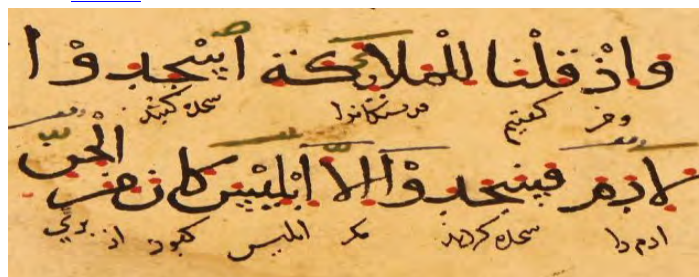 واذ قلنا للملائكة اسجدوا
كفتيم فرستكانرا سجده كنيد
لادم فسجدوا الا ابليس كان من الجن
ادم را سجده كردند مكر ابليس كبود از بري